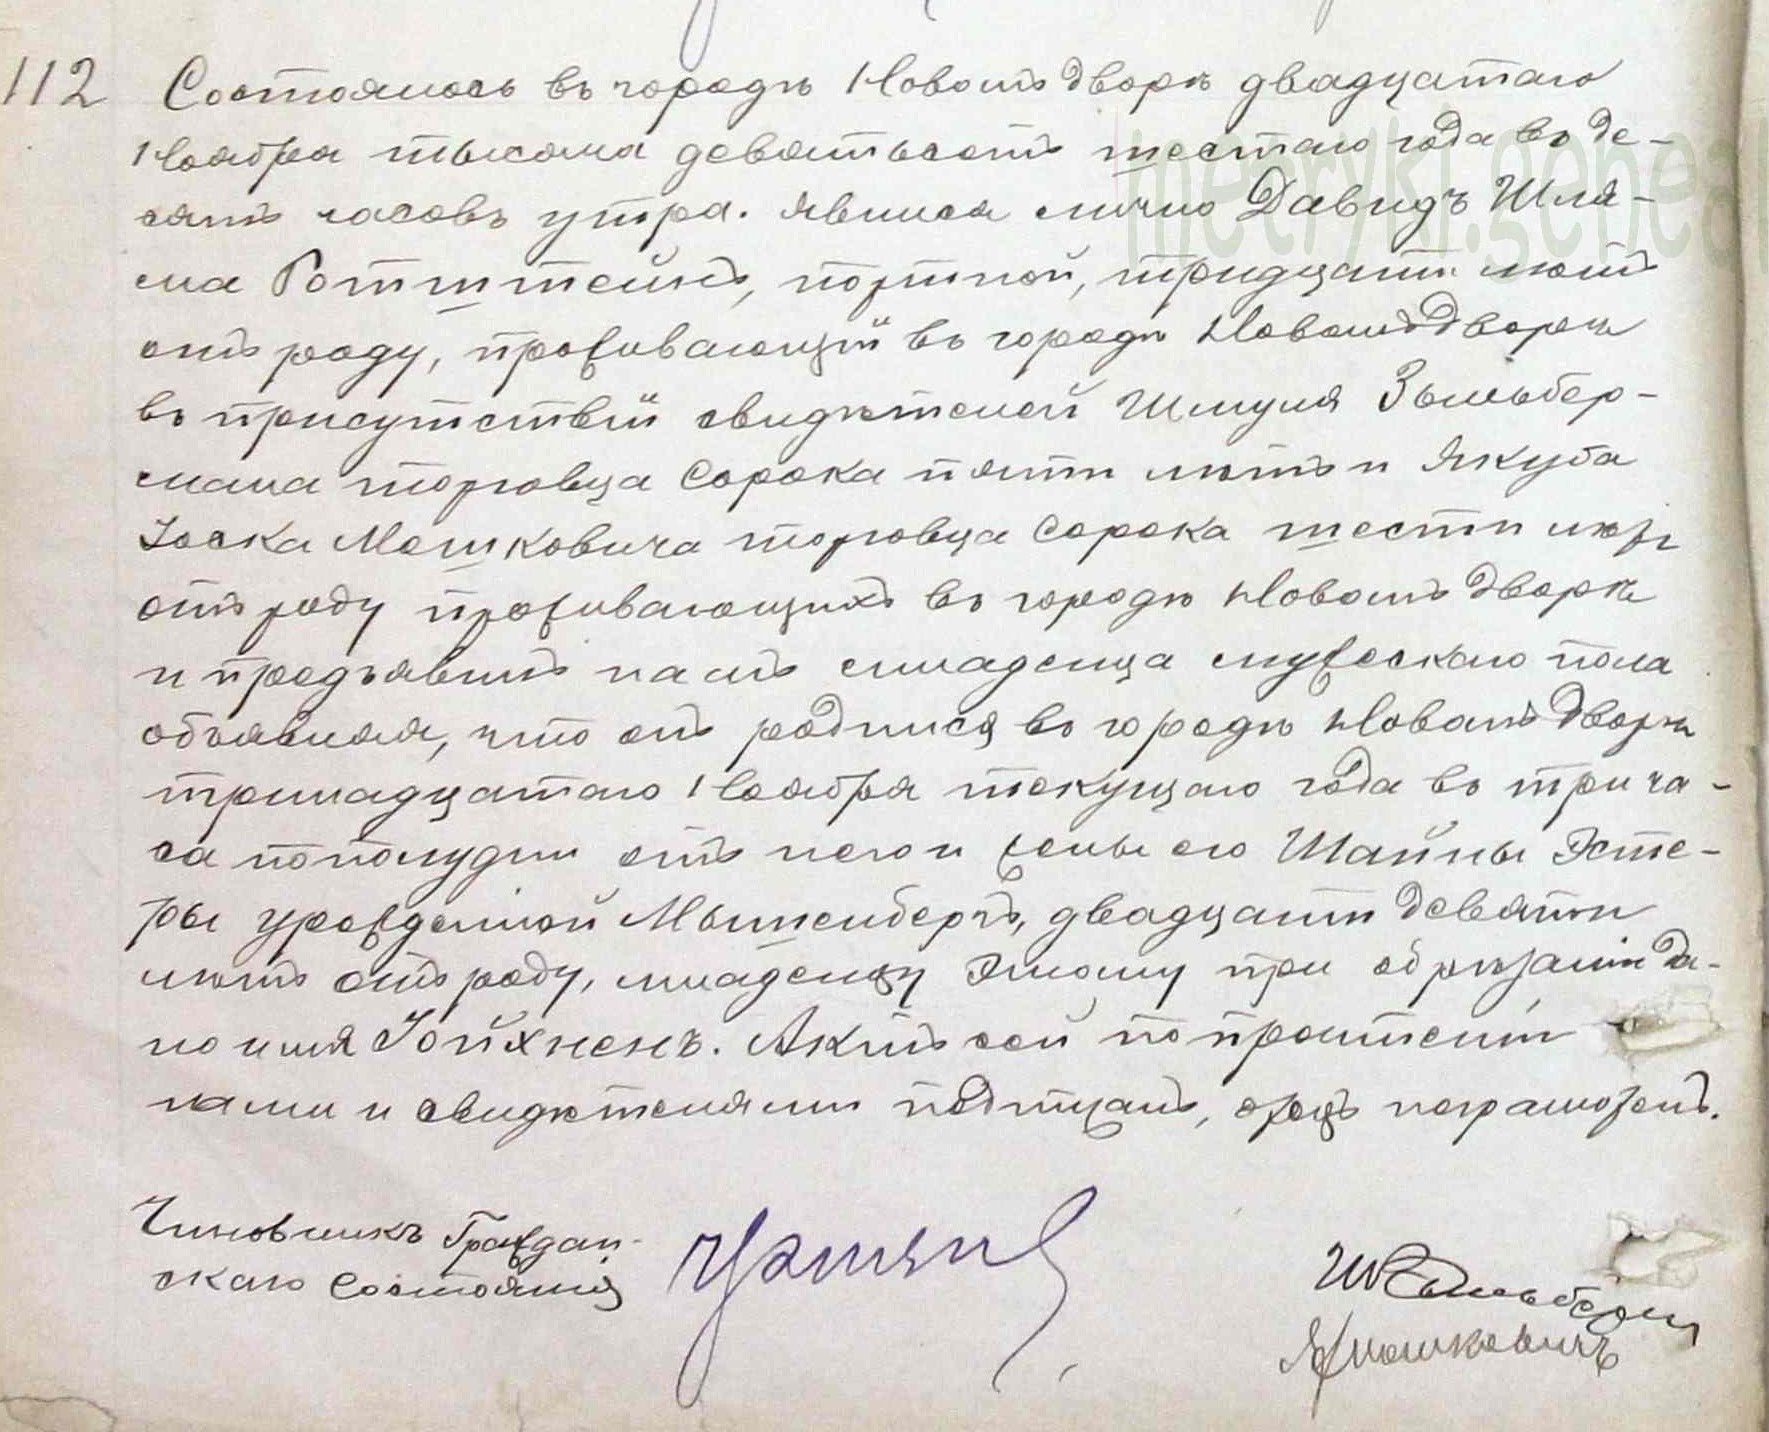 112 Состоялось въ городѣ Новомъ дворѣ двадцатаго
Ноября тысяча девятьсотъ шестаго года въ де-
сять часовъ утра. Явился лично Давидъ Шля-
ма Ротштейнъ, портной, тридцати лѣтъ
отъ роду, проживающій въ городѣ Новомъ дворѣ
въ присутствіи свидѣтелей Шмуля Зыльбер-
мана торговца сорока пяти лѣтъ и Якуба
Іоска Мошковича торговца сорока шести лѣтъ
отъ роду проживающихъ въ городѣ Новомъ дворѣ
и предъявилъ намъ младенца мужескаго пола
объявляя, что онъ родился въ городѣ Новомъ дворѣ
тринадцатаго Ноября текущаго года въ три ча-
са пополудни отъ него и жены его Шайны Эсте-
ры урожденной Мышенбергъ, двадцати девяти
лѣтъ отъ роду, младенцу этому при обрѣзаніи да-
но имя Іойхненъ. Актъ сей по прочтеніи
нами и свидѣтелями подписанъ, отецъ неграмотенъ.
Чиновникъ Граждан-
скаго Состоянія
Ш Зыльберман
Я Мошковичъ
metryki.genea